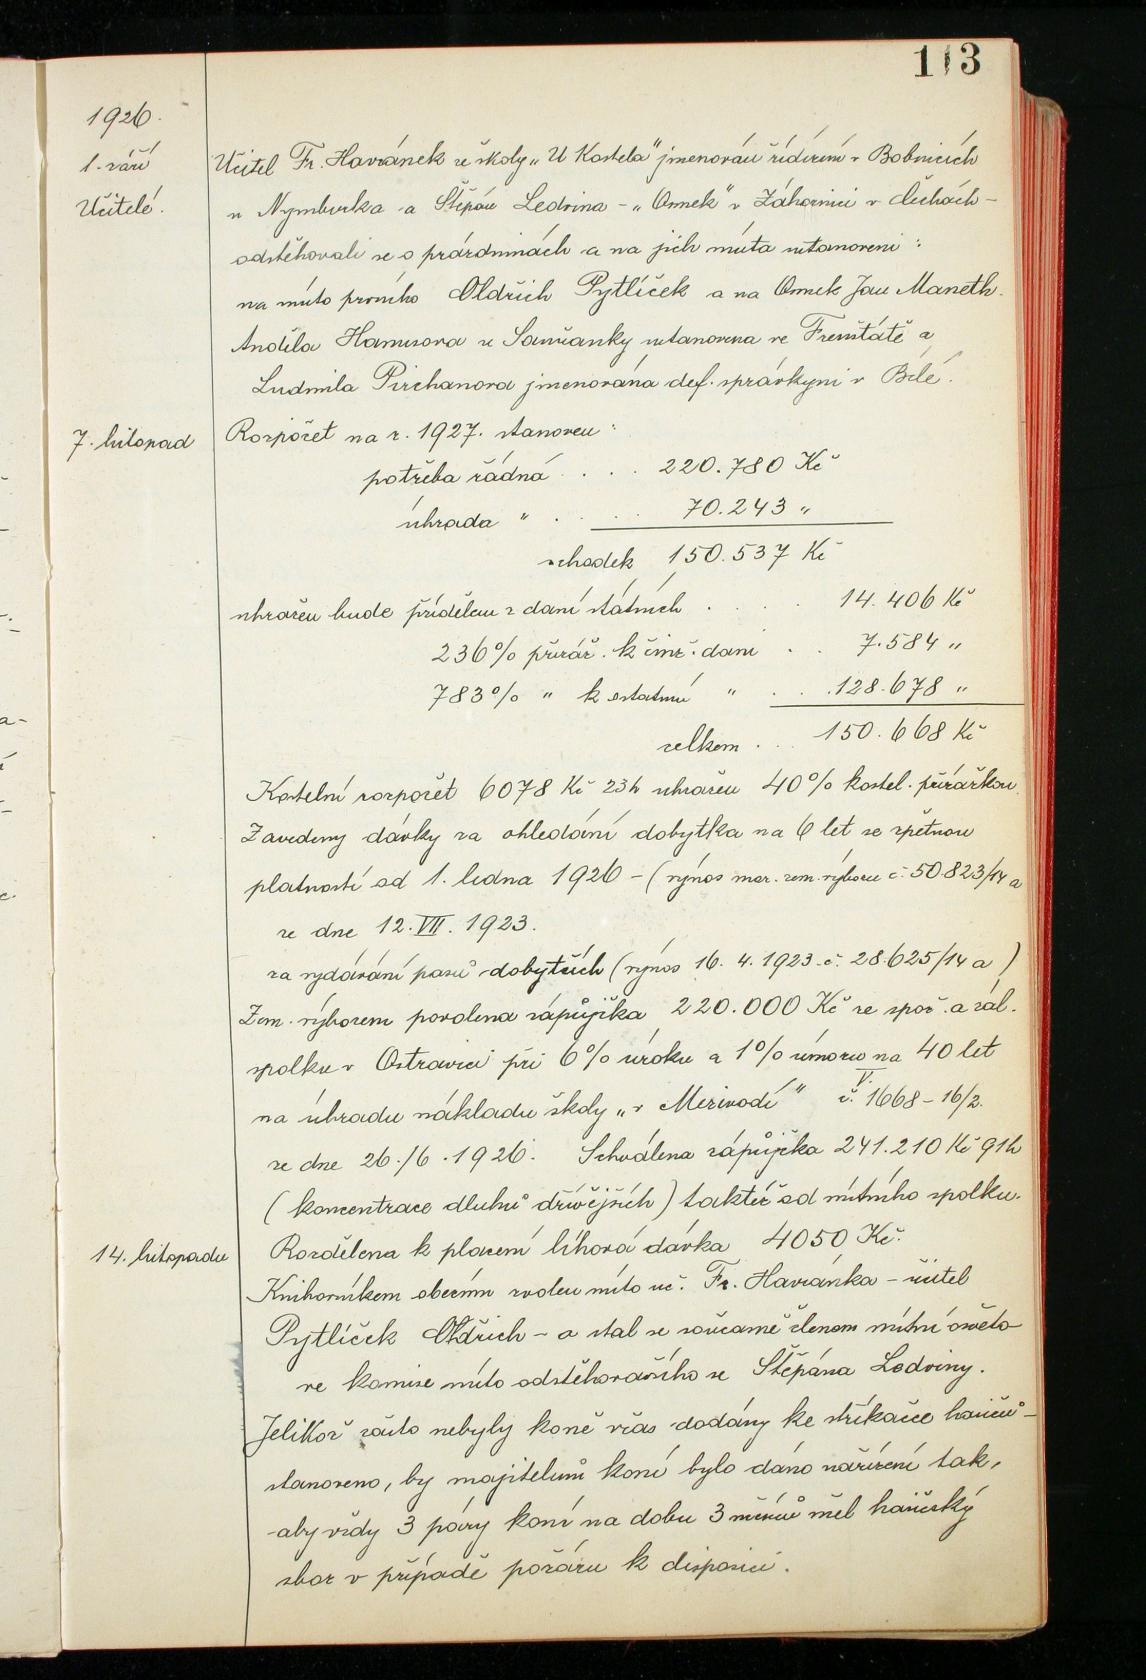 113
1926.
1. září
Učitelé.
Učitel Fr. Havránek ze školy „U Kostela" jmenován řídícím v Bobnicích
u Nymburka a Štěpán Ledvina – „Osnek" v Záhornici v Čechách –
odstěhovali se o prázdninách a na jich místa ustanoveni :
na místo prvního Oldřich Pytlíček a na Osnek Jan Maneth.
Anděla Hanusova ze Samčanky ustanovena ve Frenštátě a
Ludmila Pirchanova jmenována def. správkyní v Bílé.
7. listopad
Rozpočet na r. 1927. stanoven :
potřeba řádná . . . 220.780 Kč
úhrada " . . . 70.243 "
schodek 150.537 Kč
uhražen bude přídělem z daní státních . . . . 14.406 Kč
236% přiráž. k činž. dani . . 7.584 "
783% " k ostatní " . . . 128.678 "
celkem . . . 150.668 Kč
Kostelní rozpočet 6078 Kč 23h uhražen 40% kostel. přirážkou.
Zavedeny dávky za ohledání dobytka na 6 let se zpětnou
platností od 1. ledna 1926 – (výnos mor. zem. výboru č. 50.823/14 a
ze dne 12. VII. 1923.
za vydávání pasů dobytčích (výnos 16. 4. 1923 č. 28.625/14 a )
Zem. výborem povolena zápůjčka 220.000 Kč ze spoř. a zál.
spolku v Ostravici při 6% úroku a 1% úmoru na 40 let
na úhradu nákladu školy „v Mezivodí" č. 1668 – 16/2. V.
ze dne 26./6. 1926. Schválena zápůjčka 241.210 Kč 91h
(koncentrace dluhů dřívějších) taktéž od místního spolku.
14. listopadu
Rozdělena k placení líhová dávka 4050 Kč.
Knihovníkem obecním zvolen místo uč. Fr. Havránka – učitel
Pytlíček Oldřich – a stal se současně členem místní osvěto-
vé komise místo odstěhovavšího se Štěpána Ledviny.
Jelikož často nebyly koně včas dodány ke stříkačce hasičů –
stanoveno, by majitelům koní bylo dáno nařízení tak,
aby vždy 3 páry koní na dobu 3 měsíců měl hasičský
sbor v případě požáru k disposici.